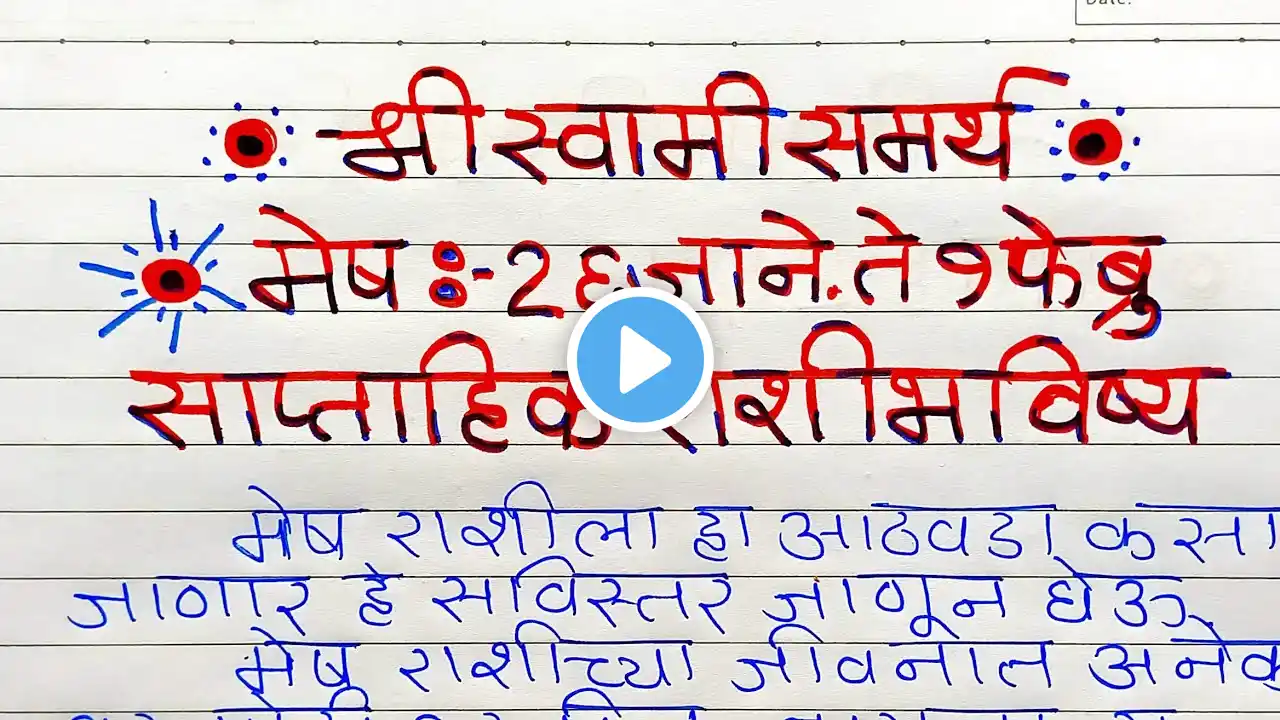 Date:
श्री स्वामी समर्थ
मेष :- 2६ जाने. ते १ फेब्रु
साप्ताहिक राशीभविष्य
मेष राशीला हा आठवडा कसा
जाणार हे सविस्तर जाणून घेऊ.
मेष राशीच्या जीवनात अनेक